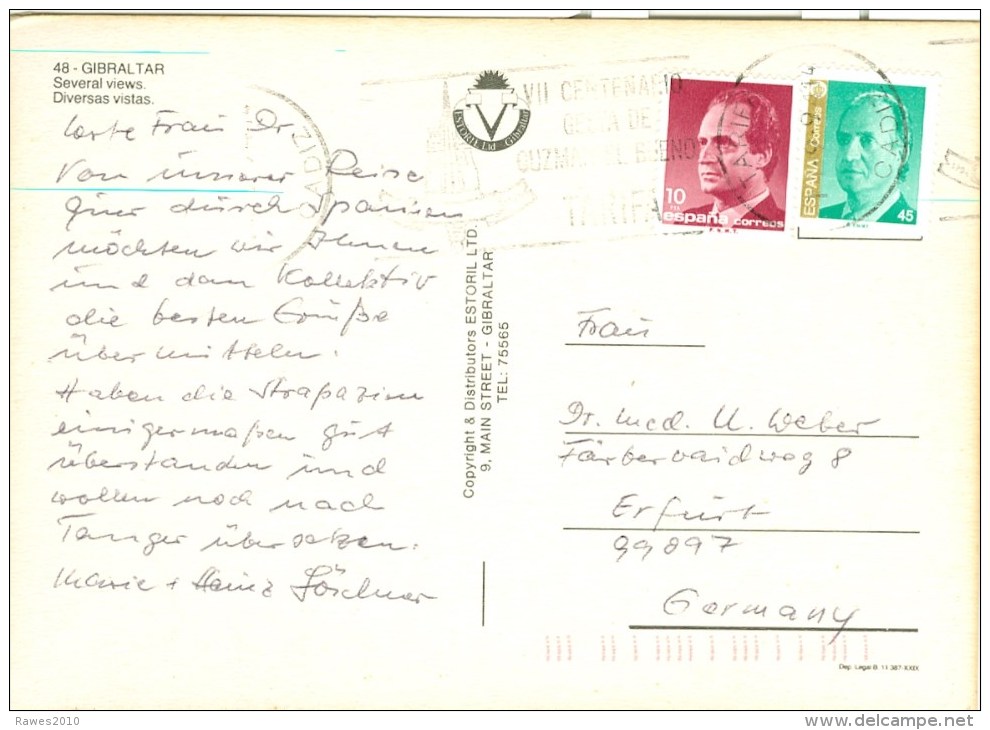 48 - GIBRALTAR
Several views.
Diversas vistas.
Frau Dr.
Von unserer Reise
quer durch Spanien
möchten wir Ihnen
und dem Kollektiv
die besten Grüße
übermitteln.
Haben die Strapazen
einigermaßen gut
überstanden und
wollen noch nach
Tanger übersetzen.
Marie + Heinz
CADIZ
ESTORIL Ltd - Gibraltar
VII CENTENARIO
GESTA DE
GUZMAN EL BUENO
TARIFA
10
PTA
españa correos
F.N.M.T.
ESPAÑA Correos
45
TARIFA
CADIZ
Copyright & Distributors ESTORIL LTD.
9, MAIN STREET - GIBRALTAR
TEL: 75565
Frau
Dr. med. U. Weber
Färberwaidweg 8
Erfurt
99097
Germany
Dep. Legal B. 11.387-XXIX
Rawes2010
delcampe.net